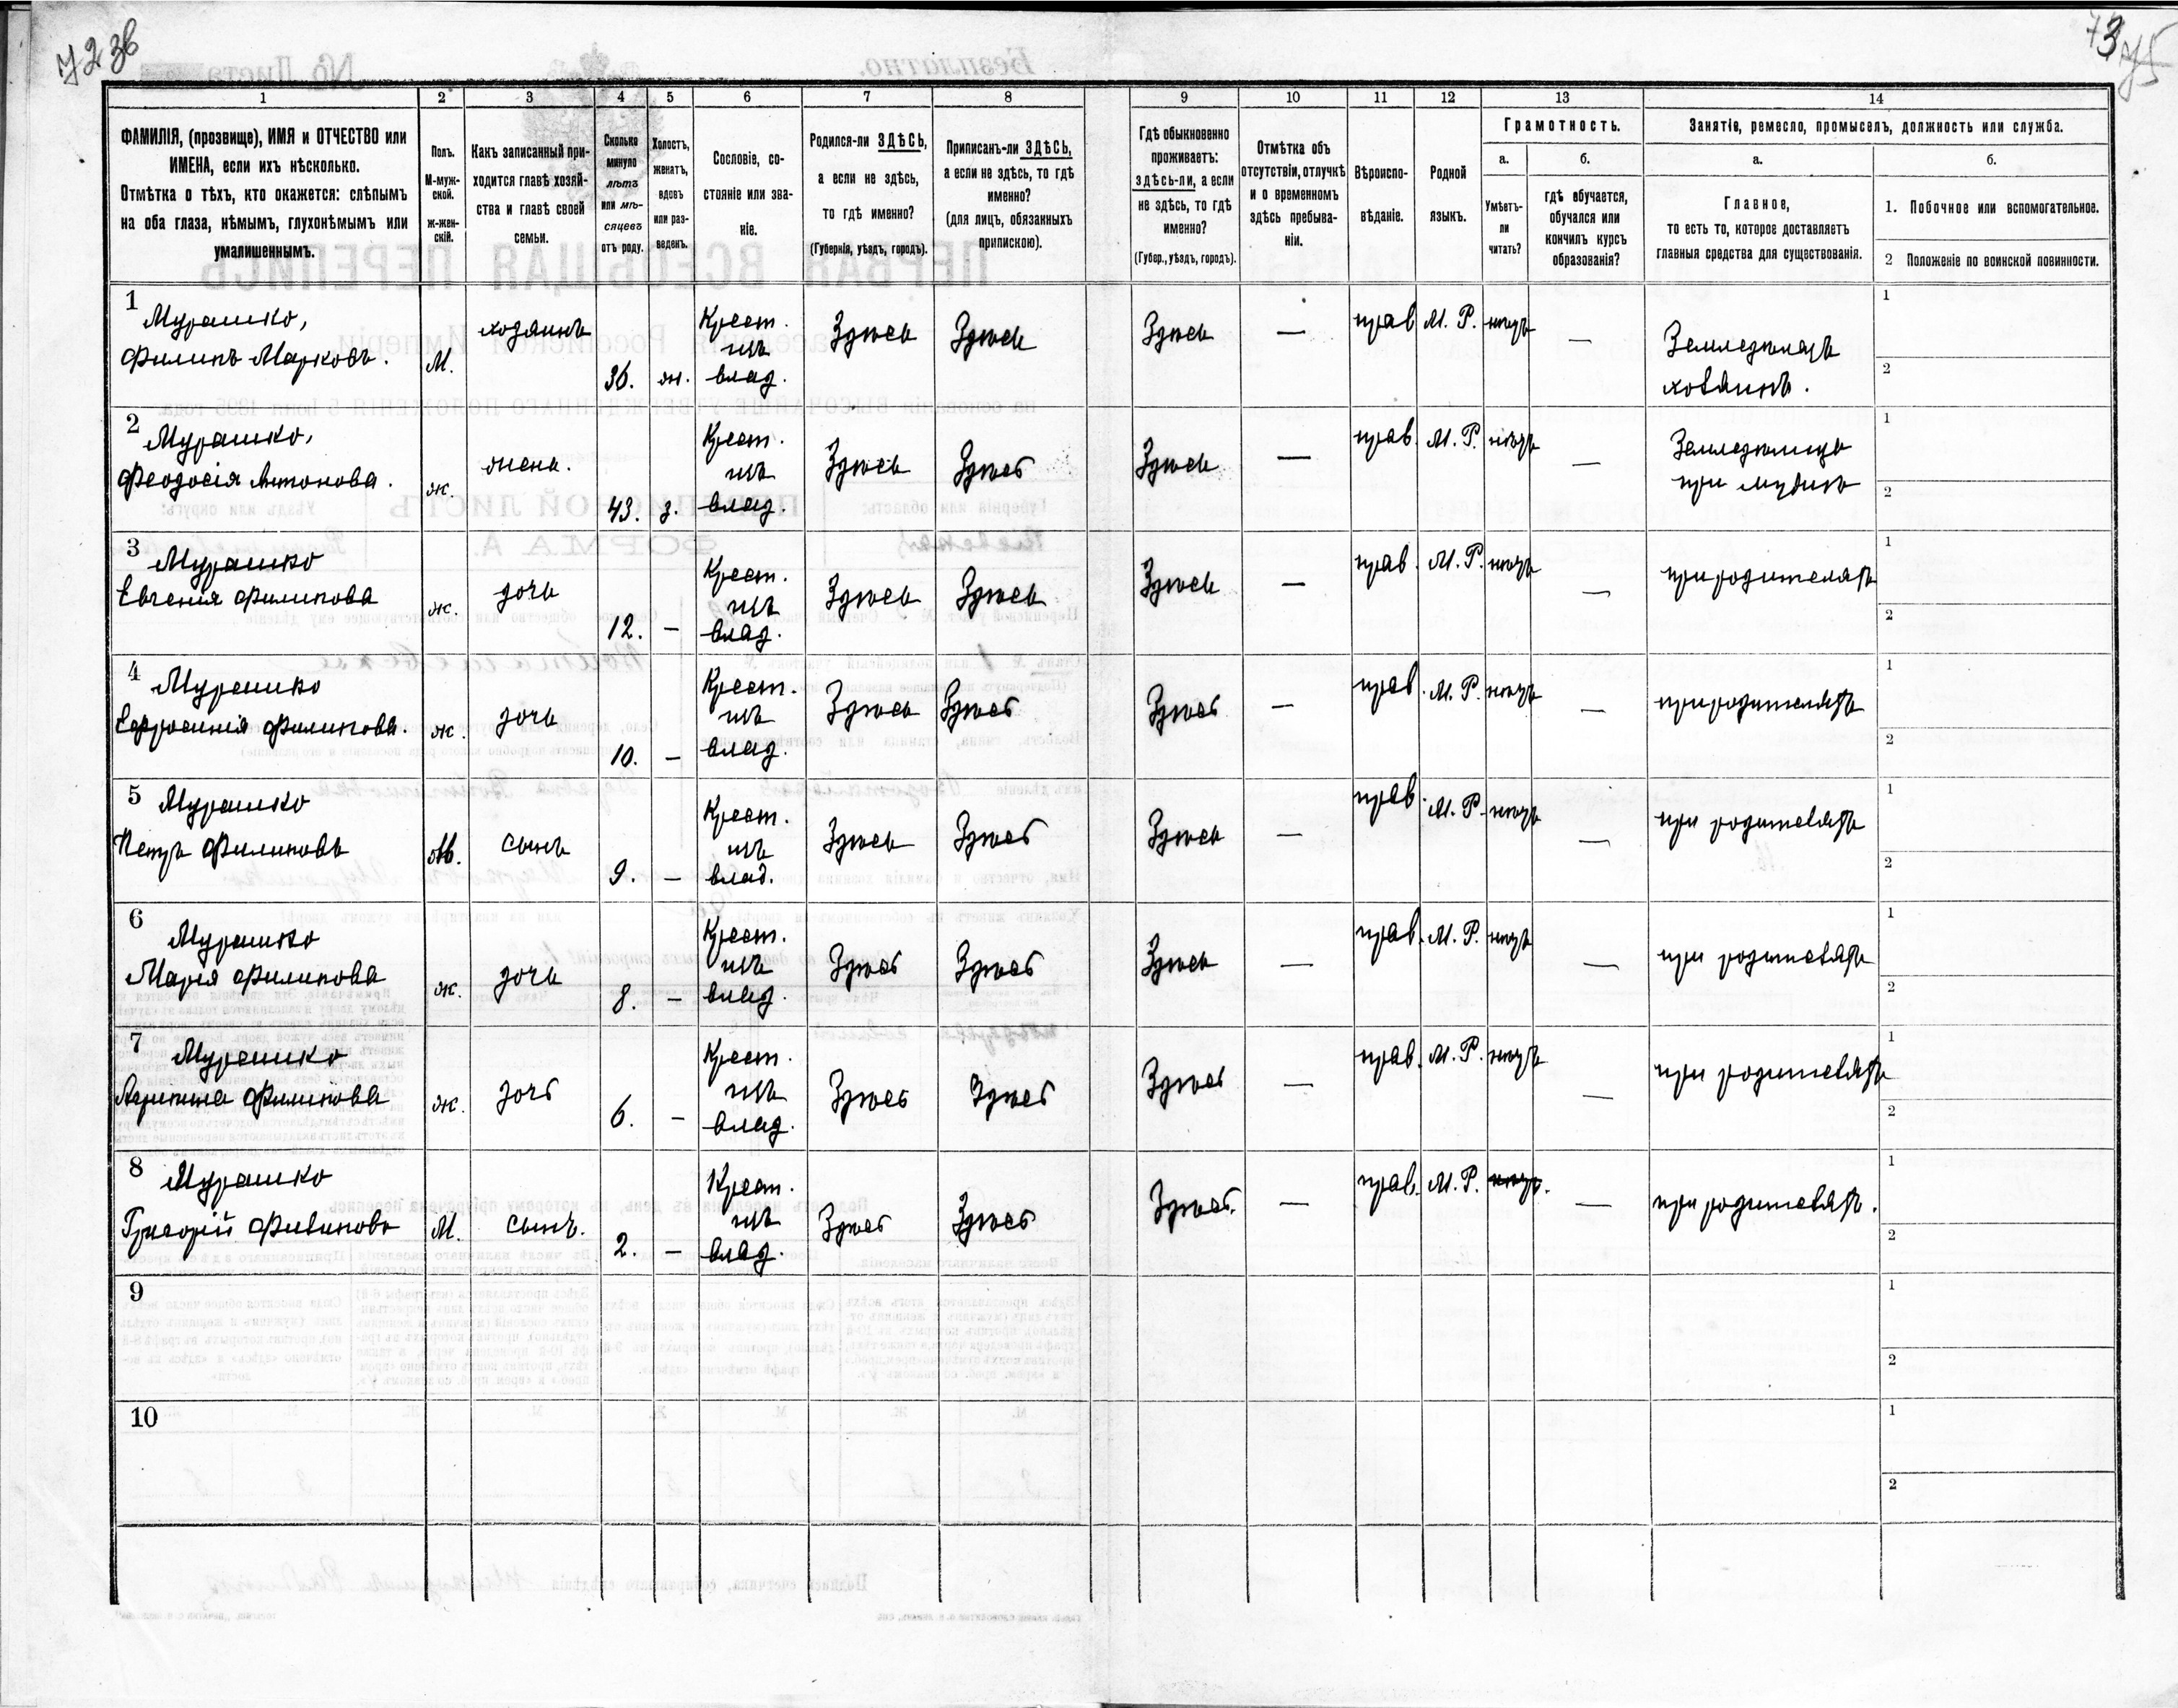 72 зв
73
75
1
2
3
4
5
6
7
8
9
10
11
12
13
14
ФАМИЛІЯ, (прозвище), ИМЯ и ОТЧЕСТВО или
ИМЕНА, если ихъ нѣсколько.
Отмѣтка о тѣхъ, кто окажется: слѣпымъ
на оба глаза, нѣмымъ, глухонѣмымъ или
умалишеннымъ.
Полъ.
М-муж-
ской.
ж-жен-
скій.
Какъ записанный при-
ходится главѣ хозяй-
ства и главѣ своей
семьи.
Сколько
минуло
лѣтъ
или мѣ-
сяцевъ
отъ роду.
Холостъ,
женатъ,
вдовъ
или раз-
веденъ.
Сословіе, со-
стояніе или зва-
ніе.
Родился-ли ЗДѢСЬ,
а если не здѣсь,
то гдѣ именно?
(Губернія, уѣздъ, городъ).
Приписанъ-ли ЗДѢСЬ,
а если не здѣсь, то гдѣ
именно?
(для лицъ, обязанныхъ
припискою).
Гдѣ обыкновенно
проживаетъ:
здѣсь-ли, а если
не здѣсь, то гдѣ
именно?
(Губер., уѣздъ, городъ).
Отмѣтка объ
отсутствіи, отлучкѣ
и о временномъ
здѣсь пребыва-
ніи.
Вѣроиспо-
вѣданіе.
Родной
языкъ.
Грамотность.
а.
Умѣетъ-
ли
читать?
б.
гдѣ обучается,
обучался или
кончилъ курсъ
образованія?
Занятіе, ремесло, промыселъ, должность или служба.
а.
Главное,
то есть то, которое доставляетъ
главныя средства для существованія.
б.
1. Побочное или вспомогательное.
2 Положеніе по воинской повинности.
1
Мурашко,
Филипъ Марковъ.
М.
хозяинъ
36.
ж.
Крест.
изъ
влад.
Здѣсь
Здѣсь
Здѣсь
—
прав
М. Р.
нѣтъ
—
Земледѣлецъ
хозяинъ.
1
2
2
Мурашко,
Феодосія Антонова.
ж.
жена.
43.
з.
Крест.
изъ
влад.
Здѣсь
Здѣсь
Здѣсь
—
прав.
М. Р.
нѣтъ
—
Земледѣлица
при мужѣ
1
2
3
Мурашко
Евгенія Филипова
ж.
дочь
12.
—
Крест.
изъ
влад.
Здѣсь
Здѣсь
Здѣсь
—
прав.
М. Р.
нѣтъ
—
при родителяхъ
1
2
4
Мурашко
Евфросинія Филипова.
ж.
дочь
10.
—
Крест.
изъ
влад.
Здѣсь
Здѣсь
Здѣсь
—
прав.
М. Р.
нѣтъ
—
при родителяхъ
1
2
5
Мурашко
Петръ Филиповъ
М.
сынъ
9.
—
Крест.
изъ
влад.
Здѣсь
Здѣсь
Здѣсь
—
прав.
М. Р.
нѣтъ
—
при родителяхъ
1
2
6
Мурашко
Марія Филипова
ж.
дочь
8.
—
Крест.
изъ
влад.
Здѣсь
Здѣсь
Здѣсь
—
прав.
М. Р.
нѣтъ
—
при родителяхъ
1
2
7
Мурашко
Агрипина Филипова
ж.
дочь
6.
—
Крест.
изъ
влад.
Здѣсь
Здѣсь
Здѣсь
—
прав.
М. Р.
нѣтъ
—
при родителяхъ
1
2
8
Мурашко
Григорій Филиповъ
М.
сынъ.
2.
—
Крест.
изъ
влад.
Здѣсь
Здѣсь
Здѣсь.
—
прав.
М. Р.
нѣтъ.
—
при родителяхъ.
1
2
9
1
2
10
1
2